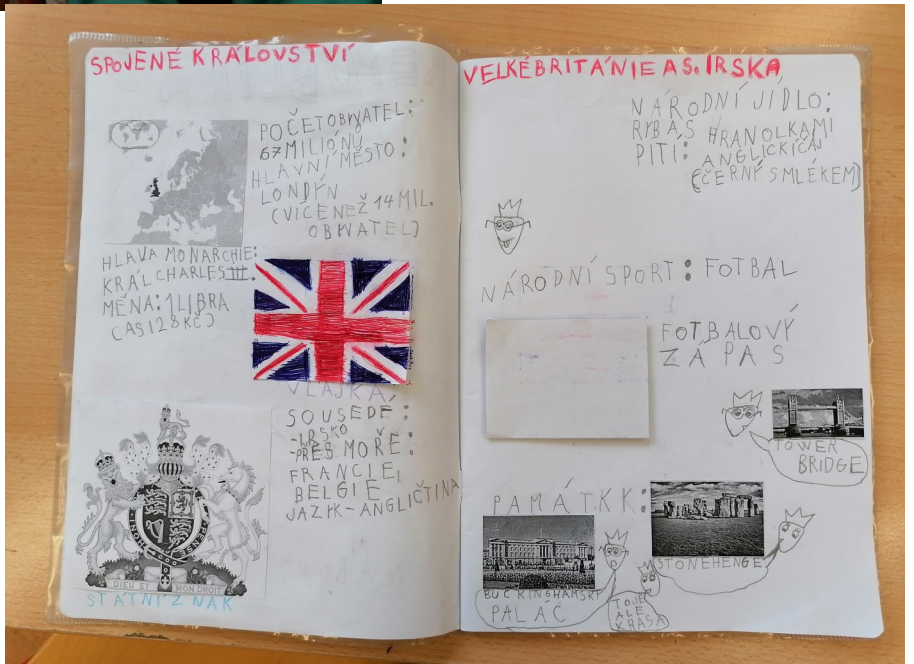 SPOJENÉ KRÁLOVSTVÍ
POČET OBYVATEL:
67 MILIÓNŮ
HLAVNÍ MĚSTO:
LONDÝN
(VÍCE NEŽ 14 MIL.
OBYVATEL)
HLAVA MONARCHIE:
KRÁL CHARLES III.
MĚNA: 1 LIBRA
(ASI 28 KČ)
VLAJKA
SOUSEDÉ:
-IRSKO
-PŘES MOŘE:
FRANCIE,
BELGIE
JAZIK-ANGLIČTINA
HONI PENSE
DIEU ET MON DROIT
STÁTNÍ ZNAK
VELKÉ BRITÁNIE A S. IRSKA
NÁRODNÍ JÍDLO:
RYBA S HRANOLKAMI
PITÍ: ANGLICKÍ ČAJ
(ČERNÝ S MLÉKEM)
NÁRODNÍ SPORT: FOTBAL
FOTBALOVÝ
ZÁPAS
TOWER
BRIDGE
PAMÁTKK:
STONEHENGE
BUCKINGHAMSKÝ
PALÁC
TO JE
ALE
KRÁSA